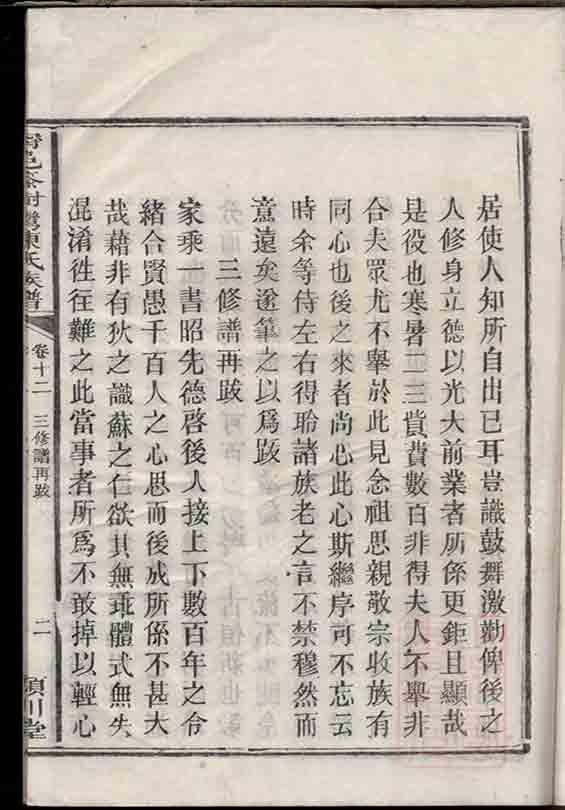 居使人知所自出已耳豈識鼓舞激勸俾後之
人修身立德以光大前業者所係更鉅且顯哉
是役也寒暑二三貲費數百非得夫人不舉非
合夫眾尤不舉於此見念祖思親敬宗收族有
同心也後之來者尚心此心斯繼序可不忘云
時余等侍左右得聆諸族老之言不禁穆然而
意遠矣遂筆之以爲跋
三修譜再跋
家乘一書昭先德啓後人接上下數百年之令
緒合賢愚千百人之心思而後成所係不甚大
哉藉非有狄之識蘇之仁欲其無乖體式無失
混淆徃徃難之此當事者所爲不敢掉以輕心
邑茶 陳氏族譜
卷十二
三修譜再跋
二
潁川堂